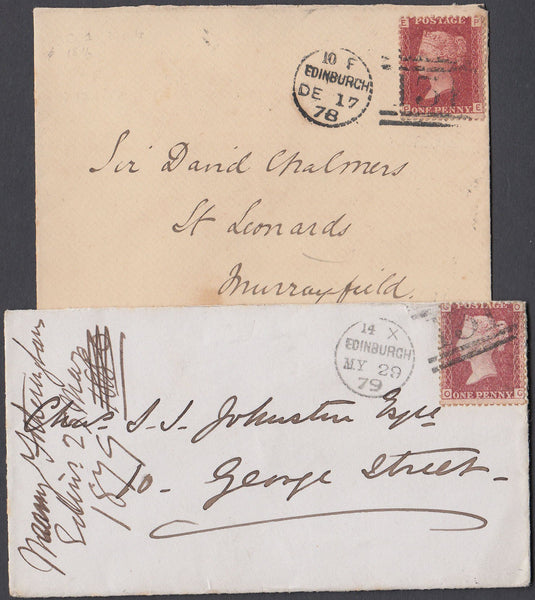 10 F
EDINBURGH
DE 17
78
POSTAGE
ONE PENNY
Sir David Chalmers
St Leonards
Murrayfield.
14 X
EDINBURGH
MY 29
79
POSTAGE
ONE PENNY
Chas. S. J. Johnston Esqre
10 - George Street -
1879